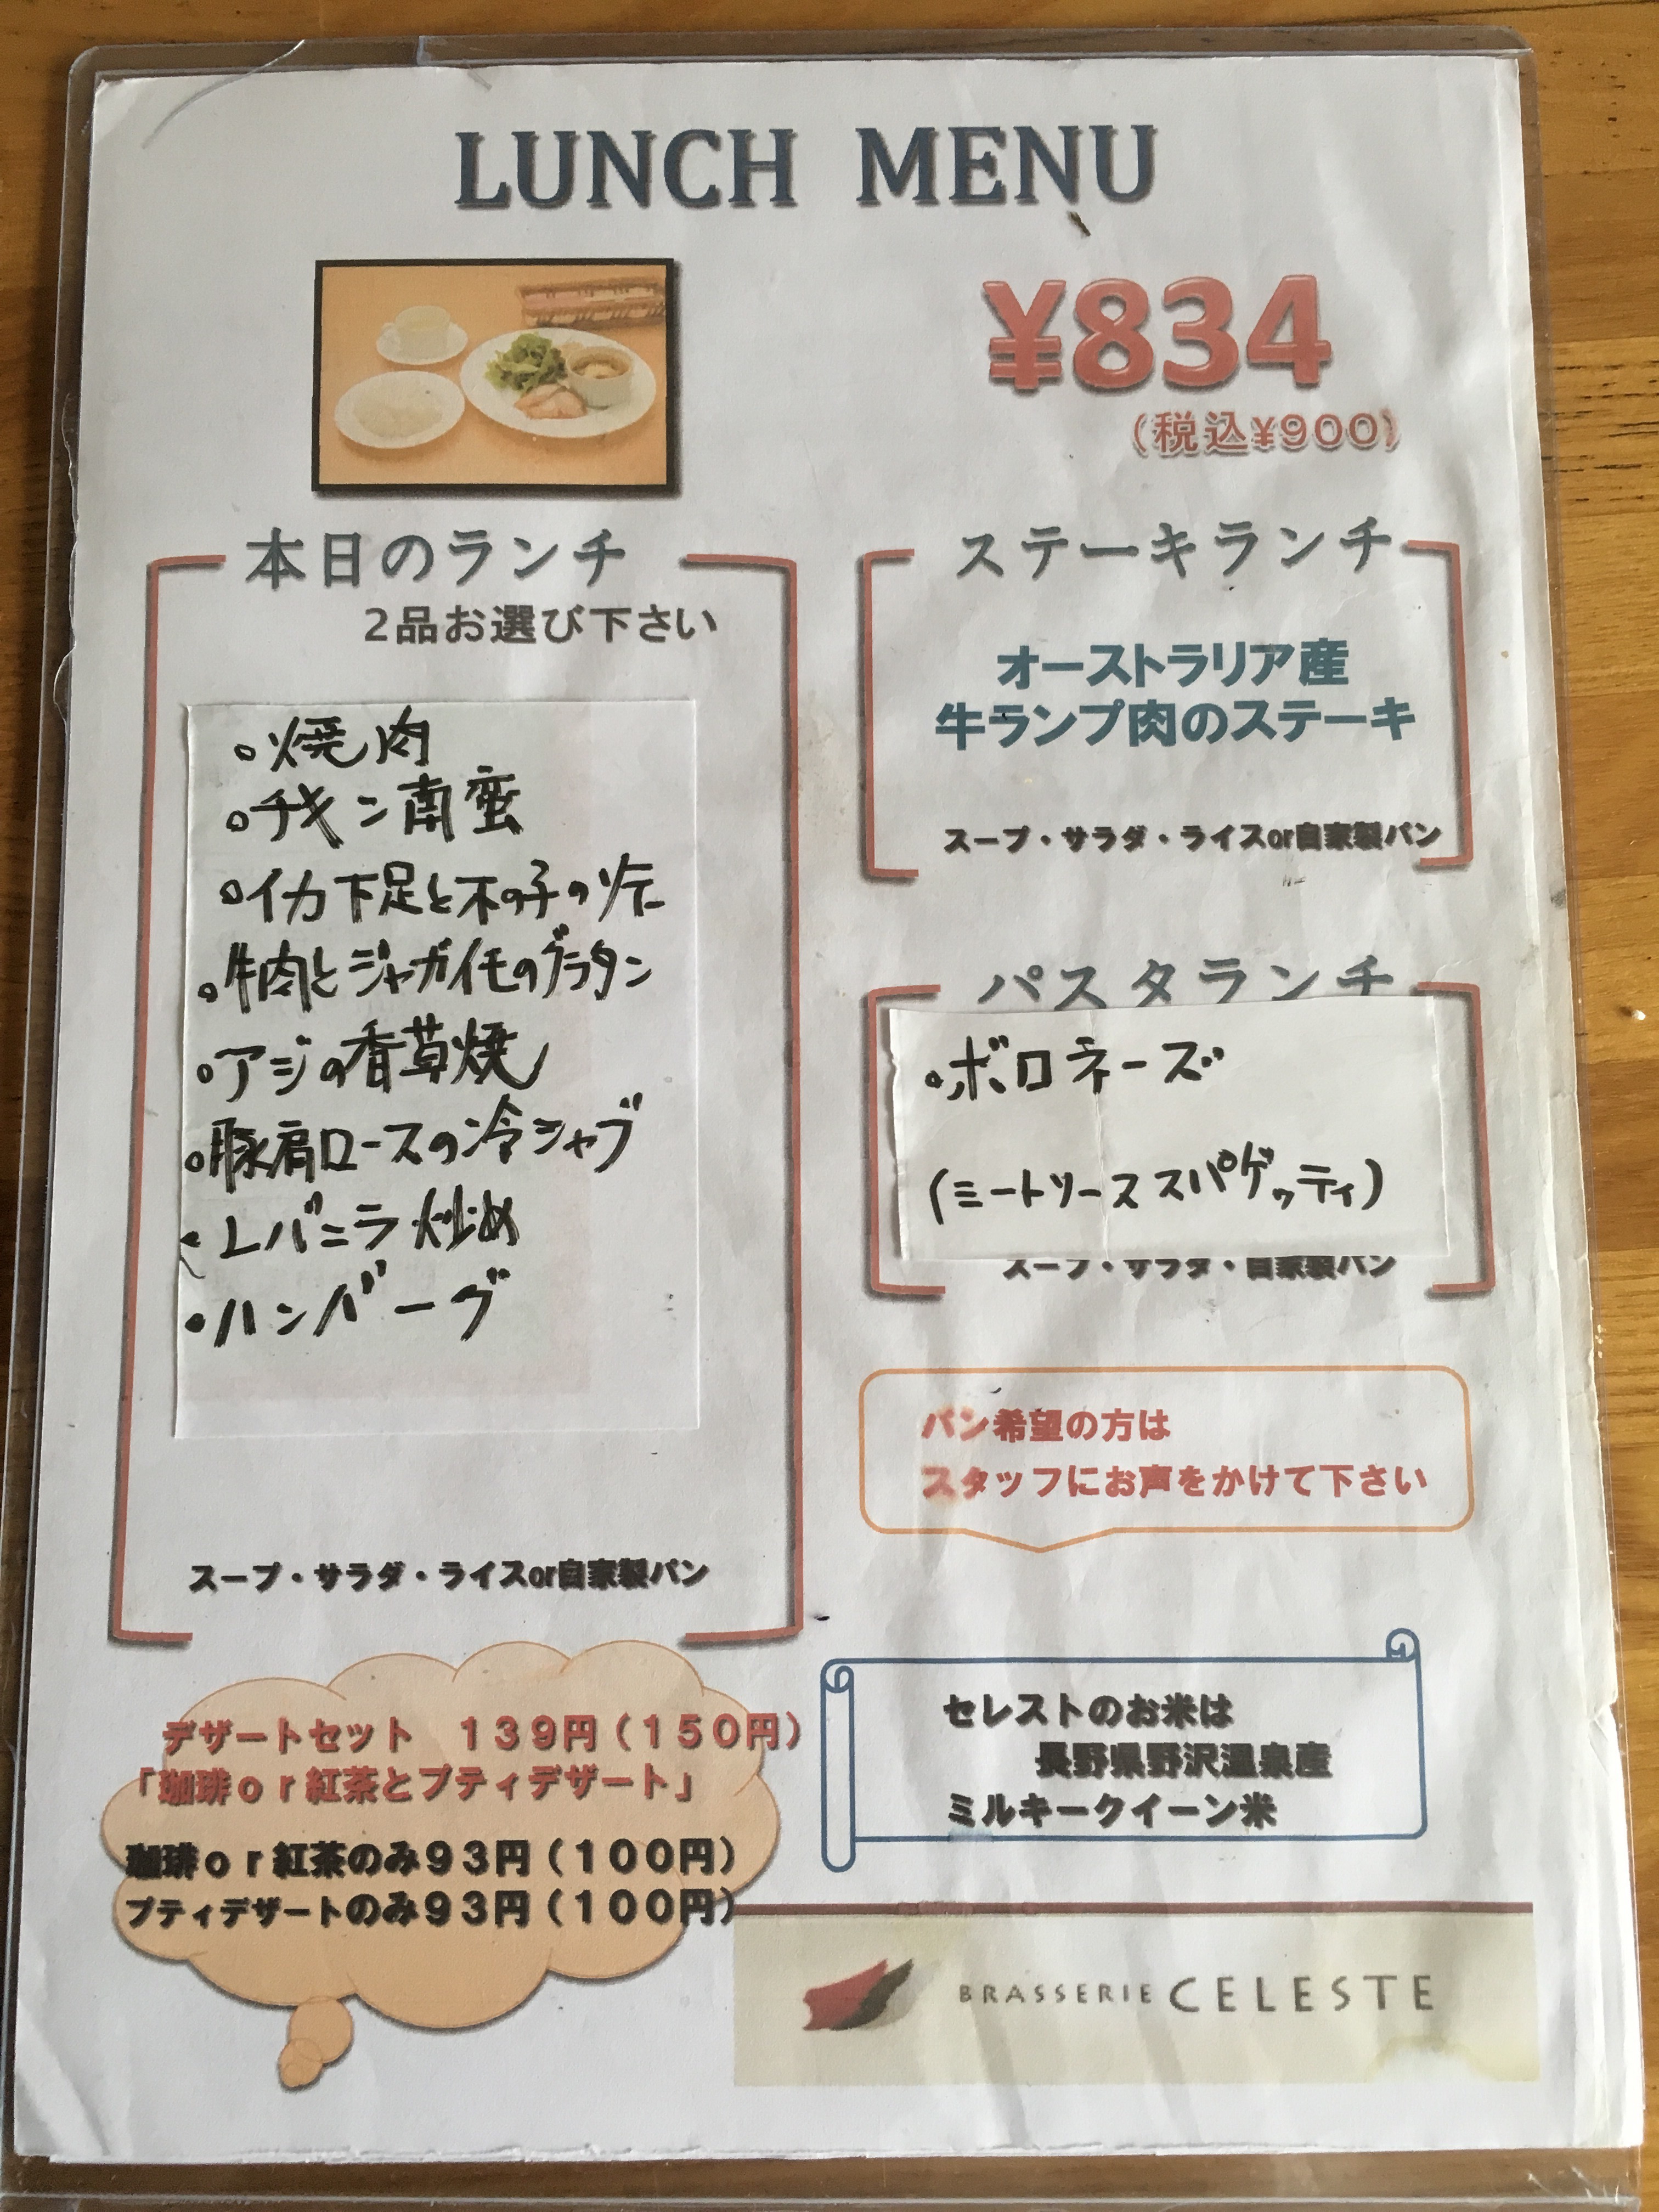 LUNCH MENU
¥834
(税込¥900)
本日のランチ
2品お選び下さい
。焼肉
。チキン南蛮
。イカ下足と木の子のソテー
。牛肉とジャガイモのグラタン
。アジの香草焼
。豚肩ロースの冷シャブ
・レバニラ炒め
・ハンバーグ
スープ・サラダ・ライスor自家製パン
ステーキランチ
オーストラリア産
牛ランプ肉のステーキ
スープ・サラダ・ライスor自家製パン
パスタランチ
・ボロネーズ
(ミートソーススパゲッティ)
スープ・サラダ・自家製パン
パン希望の方は
スタッフにお声をかけて下さい
デザートセット 139円(150円)
「珈琲or紅茶とプティデザート」
珈琲or紅茶のみ93円(100円)
プティデザートのみ93円(100円)
セレストのお米は
長野県野沢温泉産
ミルキークイーン米
BRASSERIE CELESTE